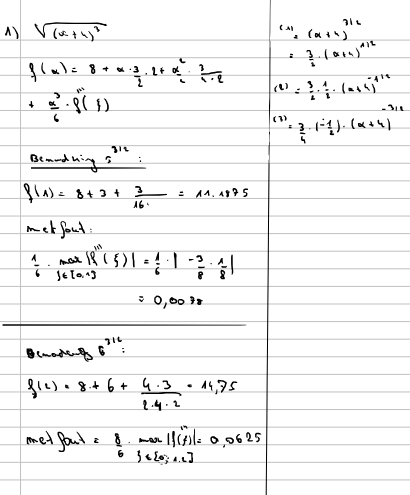 1) √(x+4)³
f(x) = 8 + x · 3/2 · 2 + x²/2 · 3/(4·2)
+ x³/6 · f'''(ξ)
Benadering 5^3/2 :
f(1) = 8 + 3 + 3/16 = 11.1875
met fout:
1/6 · max |f'''(ξ)| = 1/6 · | -3/8 · 1/8 |
ξ∈[0,1]
= 0,0078
Benadering 6^3/2 :
f(2) = 8 + 6 + 4·3/(2·4·2) = 14,75
met fout = 8/6 · max |f'''(ξ)| = 0,0625
(1) = (x+4)^3/2
= 3/2 · (x+4)^1/2
(2) = 3/2 · 1/2 · (x+4)^-1/2
(3) = 3/4 · (-1/2) · (x+4)^-3/2